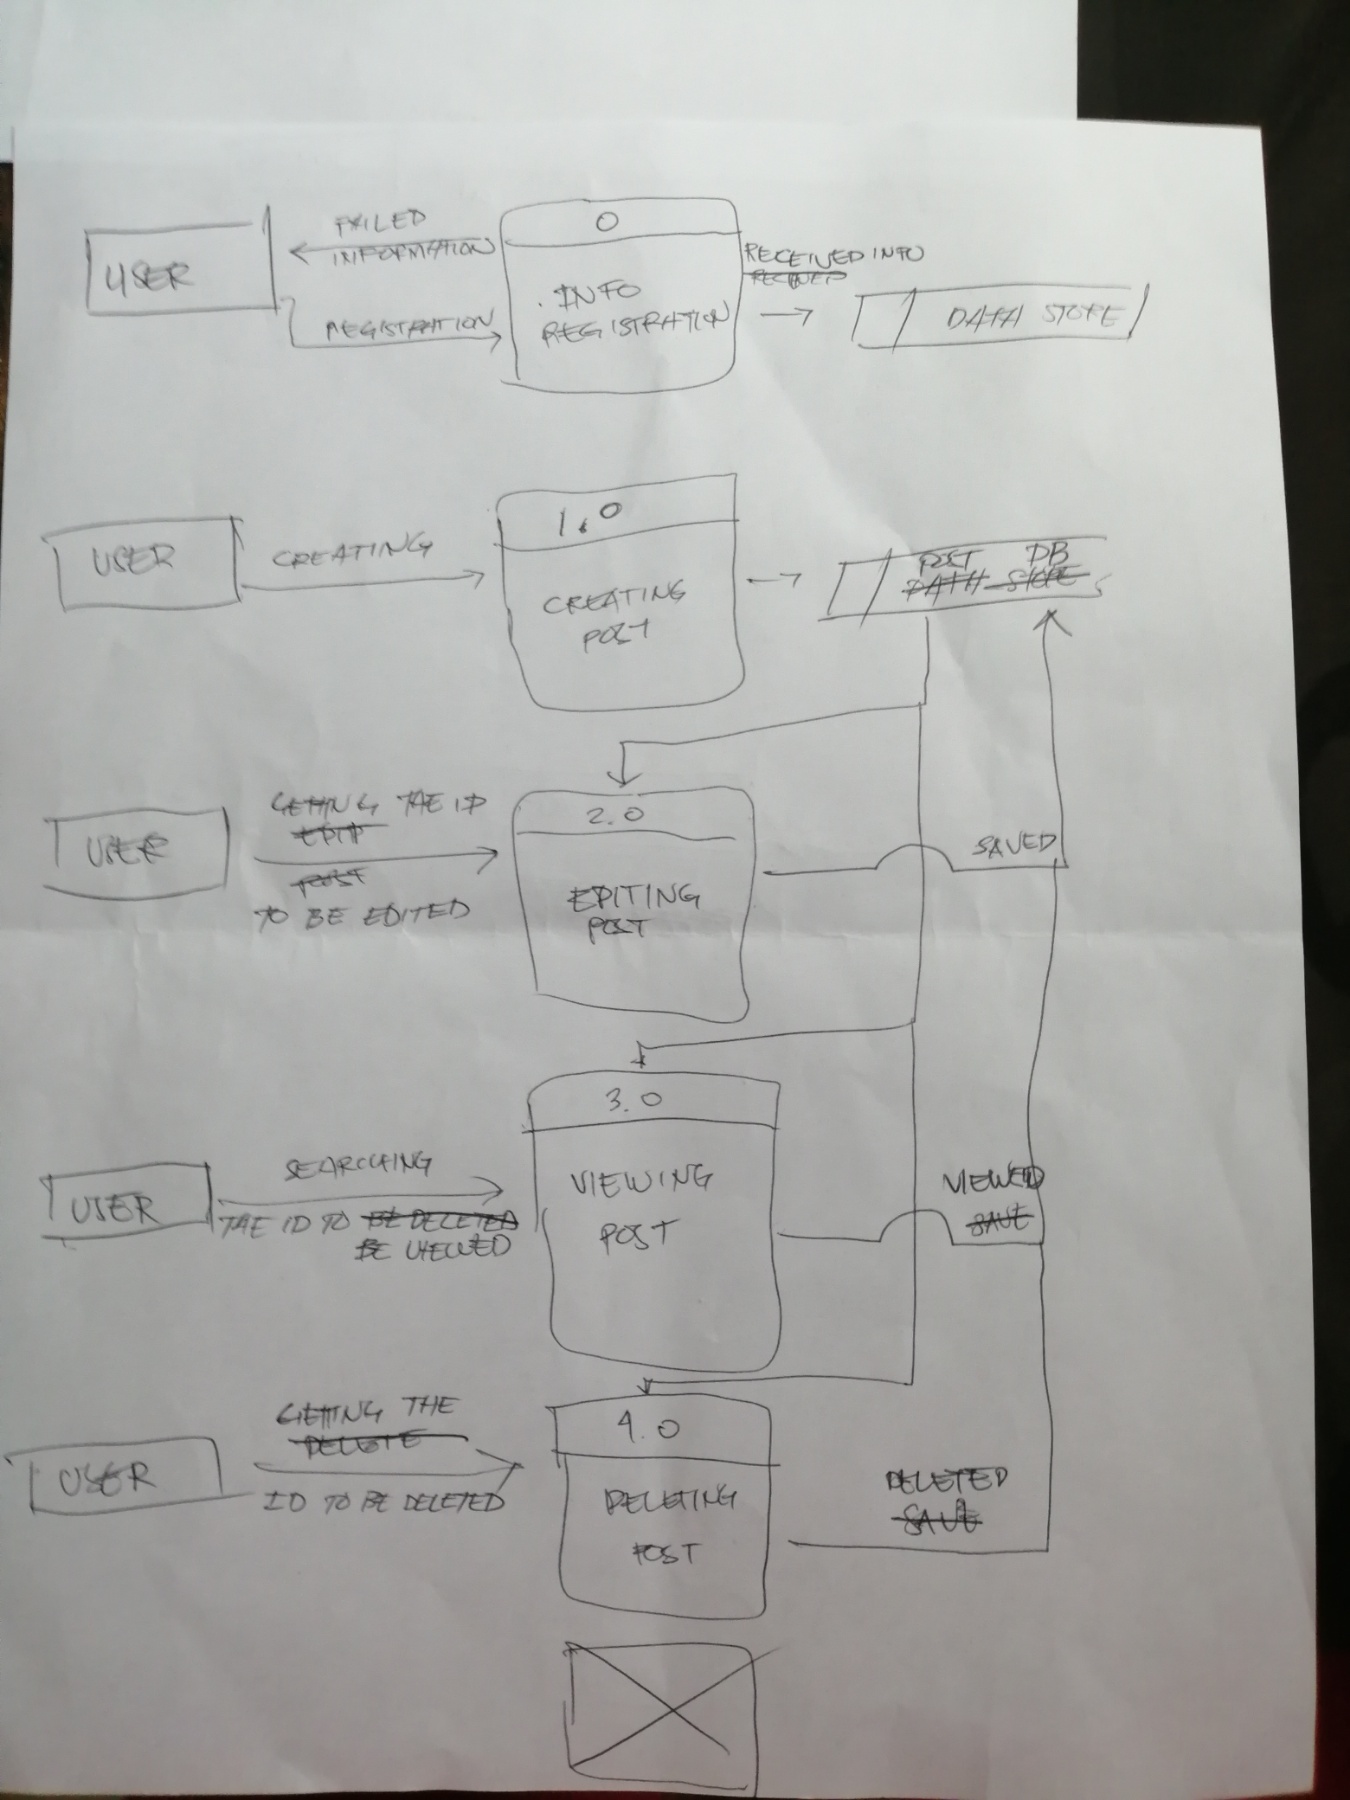 FAILED
INFORMATION
USER
REGISTRATION
0
INFO
REGISTRATION
RECEIVED INFO
RECEIVED
DATA STORE
USER
CREATING
1.0
CREATING
POST
POST DB
DATA STORE
USER
GETTING THE ID
EDIT
POST
TO BE EDITED
2.0
EDITING
POST
SAVED
USER
SEARCHING
THE ID TO BE DELETED
BE VIEWED
3.0
VIEWING
POST
VIEWED
SAVE
USER
GETTING THE
DELETE
ID TO BE DELETED
4.0
DELETING
POST
DELETED
SAVE